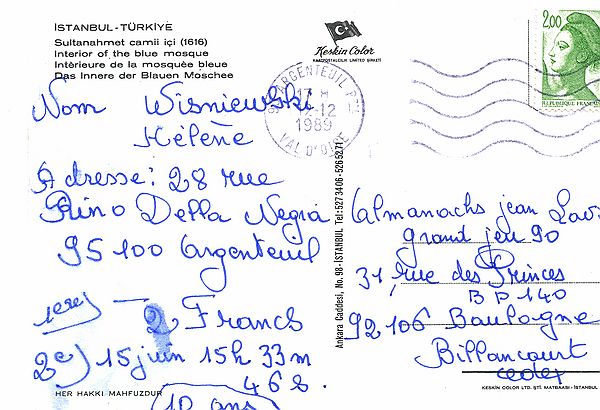 İSTANBUL-TÜRKİYE
Sultanahmet camii içi (1616)
Interior of the blue mosque
Intèrieure de la mosquèe bleue
Das Innere der Blauen Moschee
Keskin Color
KARTPOSTALCILIK LIMITED ŞİRKETİ
ARGENTEUIL
17 H
12
1989
VAL D'OISE
2,00
REPUBLIQUE FRANÇAISE
Nom Wisniewski
Hélène
Adresse: 28 rue
Rino Della Negra
95100 Argenteuil
1ere) — 2 Francs
2e) 15 juin 15h 33m
46 s.
10 ans
HER HAKKI MAHFUZDUR
Ankara Caddesi, No. 98-İSTANBUL Tel: 5273406-5265271
Almanachs jean
grand jeu 90
31, rue des Princes
BP 140
92106 Boulogne
Billancourt
cedex
KESKİN COLOR LTD. ŞTİ. MATBAASI - İSTANBUL